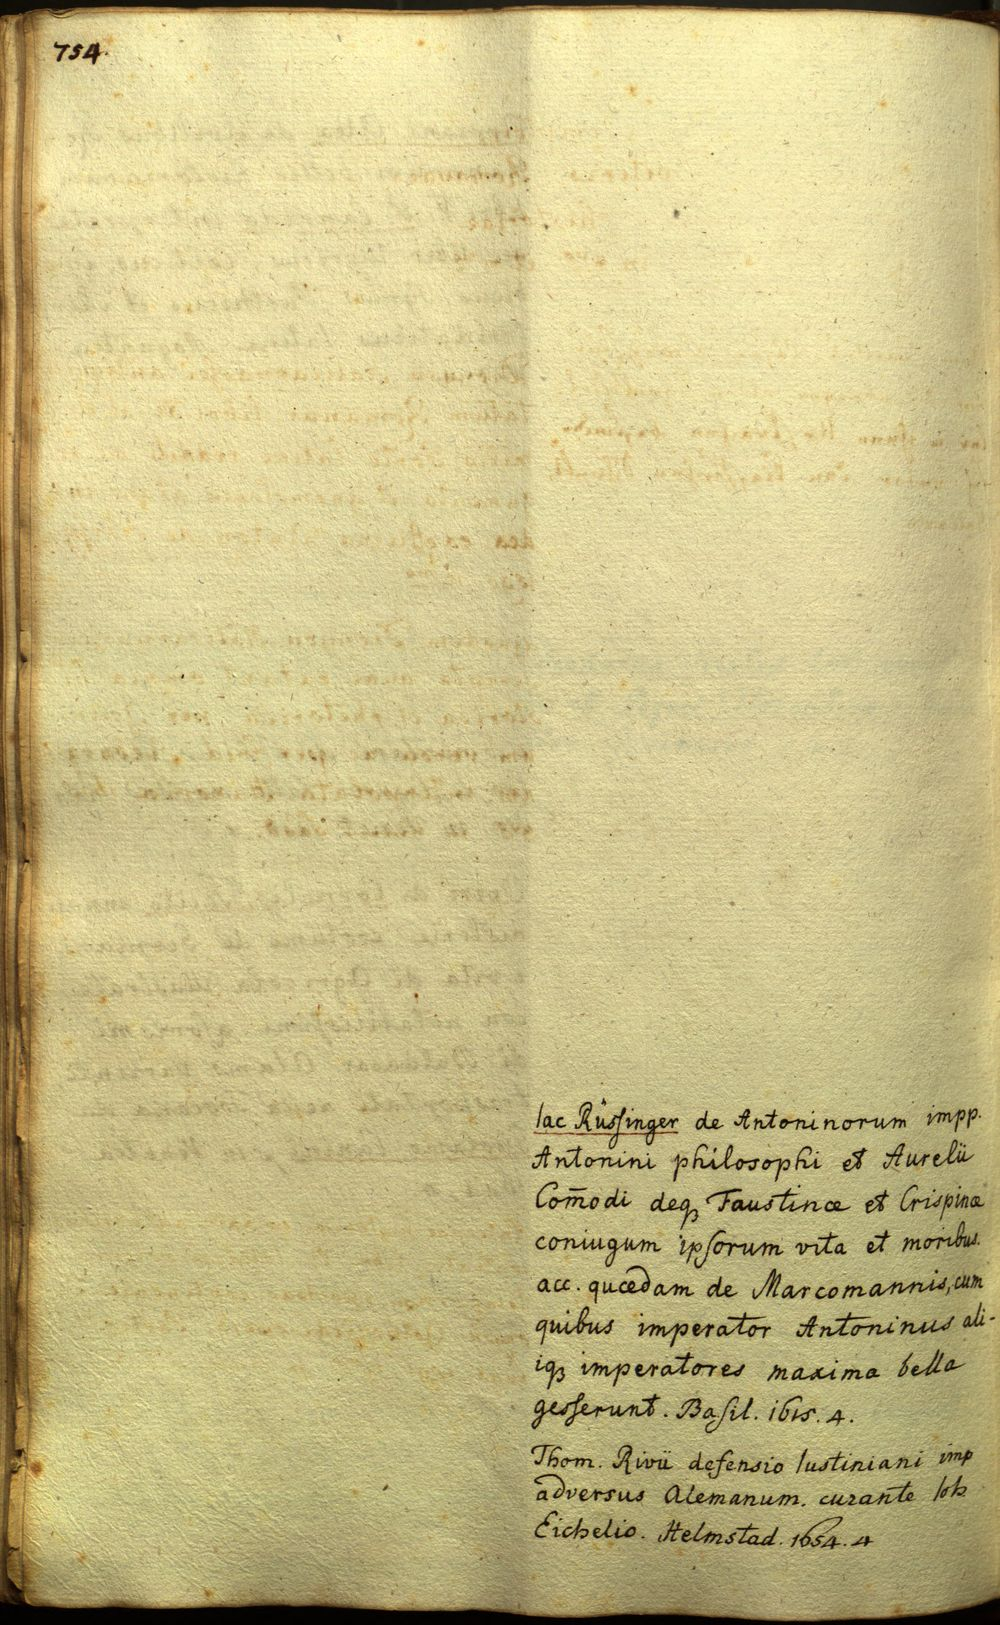 754.
Iac Rüsſinger de Antoninorum impp.
Antonini philosophi et Aurelii
Com̄odi deqꝫ Faustinæ et Crispinæ
coniugum ipſorum vita et moribus.
acc. quædam de Marcomannis, cum
quibus imperator Antoninus ali-
iqꝫ imperatores maxima bella
gesſerunt. Baſil. 1615. 4.
Thom. Rivii defensio Iustiniani imp
adversus Alemanum. curante Ioh
Eichelio. Helmstad. 1654. 4